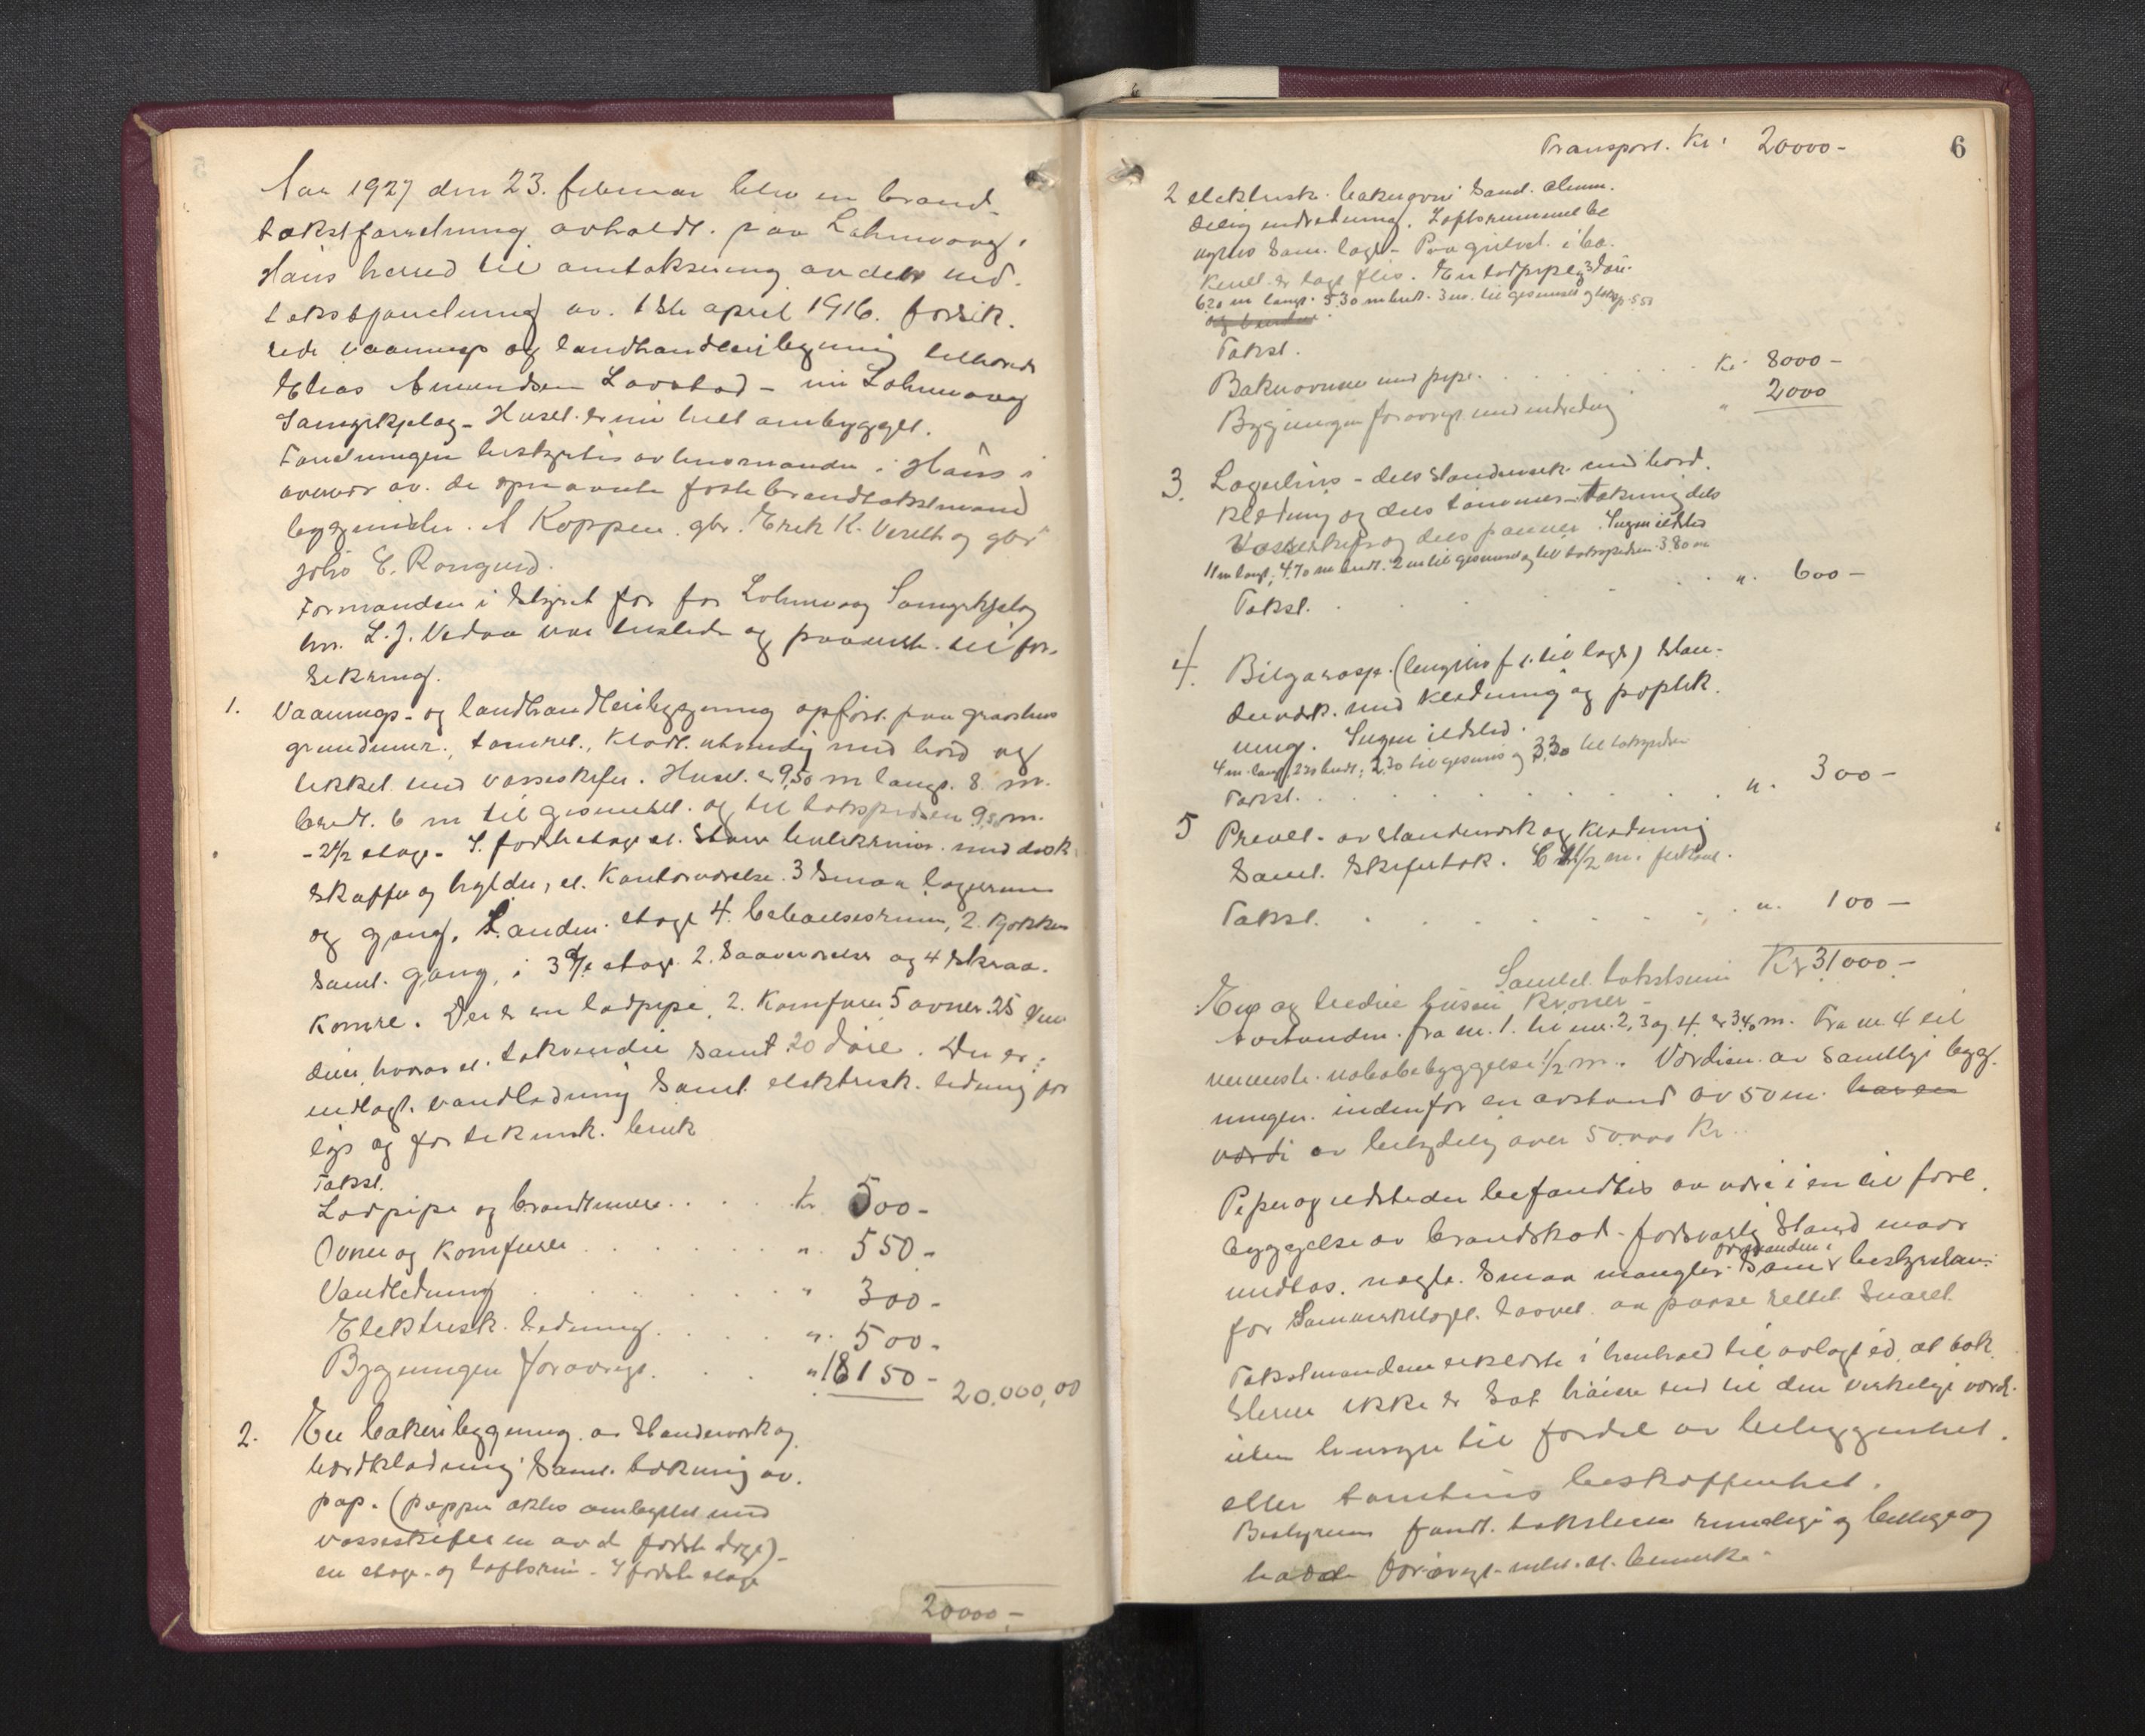 Aar 1927 den 23. februar blev en brand-
takstforretning avholdt paa Lohnevaag i
Haus herred til omtaksering av den ved
takstforretning av 1ste april 1916 forsik-
rede vaanings og landhandleribygning tilhørende
Elias Amundsen Lavstad - nu Lohnevaag
Samyrkjelag - Huset er nu helt ombygget.
Forretningen bestyrtes av lensmanden i Haus i
overvær av de opnævnte faste brandtakstmænd
bygmester A Koppen, gbr. Erik K. Veseth og gbr
Johs E. Romgved.
Formanden i styret for for Lohnevaag Samyrkjelag
hr. L. J. Vedaa var tilstede og paaviste til for-
sikring.
1. Vaanings- og landhandleribygning opført paa graastens
grundmur, tømret, klædt utvendig med bord og
tækket med vosseskifer. Huset er 9,50 m langt 8 m.
bredt. 6 m til gesimset og til takspidsen 9,50 m.
- 2 1/2 etage - I første etage et stort butikrum med disk
skaffer og hylder, et kontorværelse 3 smaa lagerrum
og gang. I anden etage 4 beboelsesrum, 2 kjøkken
samt gang, i 3dje etage 2 soveværelser og 4 skraa-
komre. Der er en lodpipe, 2 komfurer 5 ovner 25 vin
duer, hvorav et takvindu samt 20 døre. Der er
indlagt vandledning samt elektrisk ledning for
lys og for teknisk bruk
Takst.
Lodpipe og brandmure . . . kr 500 -
Ovner og komfurer . . . . " 550 -
Vandledning . . . . " 300 -
Elektrisk ledning . . . . " 500 -
Bygningen forøvrigt . . . " 18150 - 20.000,00
2. En bakeribygning av standerverk og
bordklædning samt tækning av
pap. (pappen aktes ombyttet med
vosseskifer en av de første dage) -
en etage og loftsrum - I første etage
20000 -
6
Transport. Kr. 20000 -
2 elektrisk bakerovn samt alm.
delig indredning. Loftsrummet be
nyttes som lager - Paa gulvet i ba-
keriet er lagt flis. En lodpipe, 3 døre
6,20 m langt 5,30 m bredt 3 m. til gesimset og taksp. 5,50
Takst.
Bakerovnene med pipe . . . . . kr. 8000 -
Bygningen forøvrigt med indredning " 2000
3. Lagerhus - dels standerverk med bord-
klædning og dels tømmer - tækning dels
vosseskifer og dels panner. Ingen ildsted
11 m langt, 4,70 m bredt, 2 m til gesimset og til takspidsen 3,80 m
Takst. . . . . . " 600 -
4. Bilgarage (benyttes f. t. til lager) stan-
derverk med klædning og paptæk-
ning. Ingen ildsted.
4 m. langt, 2,30 bredt, 2,30 til gesims og 3,30 til takspidsen
Takst. . . . . . . " 300 -
5 Privet - av standerverk og klædning
samt skifertak. C 1 1/2 m. i firkant.
Takst. . . . . . . " 100 -
Samlet takstsum Kr 31000 -
En og tredive tusen kroner -
Avstanden fra nr. 1. til nr. 2, 3 og 4 er 3,40 m. Fra nr 4 til
nærmeste nabobebyggelse 1/2 m. Værdien av samtlige byg-
ninger indenfor en avstand av 50 m. har en
værdi av betydelig over 50.000 Kr.
Piper og ildsteder befandtes at være i en til fore-
byggelse av brandskade forsvarlig stand maar
undtas nogle smaa mangler som formanden i bestyrelsen
for Samyrkelaget lovet at paase rettet snarest.
Takstmændene erklærte i henhold til avlagt ed, at tak-
sterne ikke er sat høiere end til den virkelige værdi
uten hensyn til fordel av beliggenhet
eller tomtens beskaffenhet.
Bestyreren fandt taksterne rimelige og billige og
hadde forøvrigt intet at bemerke -